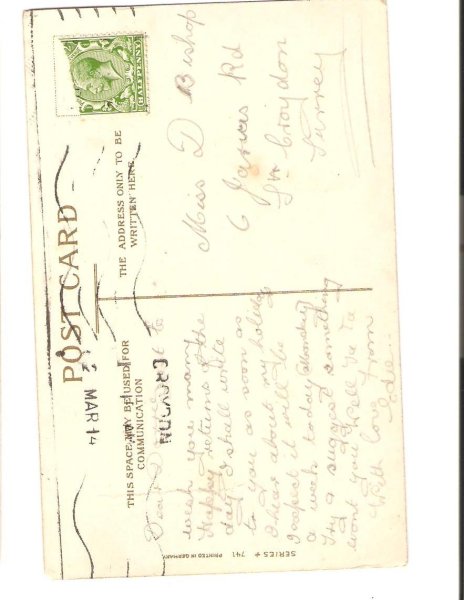 HALFPENNY
POST CARD
CROYDON
MAR 14
THIS SPACE MAY BE USED FOR
COMMUNICATION
THE ADDRESS ONLY TO BE
WRITTEN HERE
Dear
wish you many
Happy returns of the
day I shall write
to you as soon as
I hear about my holiday
I expect it will be
a week today (Saturday)
Try & suggest something
wont you
With love from
Edie
Miss D Bishop
6 Jarvis Rd
Sth Croydon
Surrey
SERIES 741 PRINTED IN GERMANY